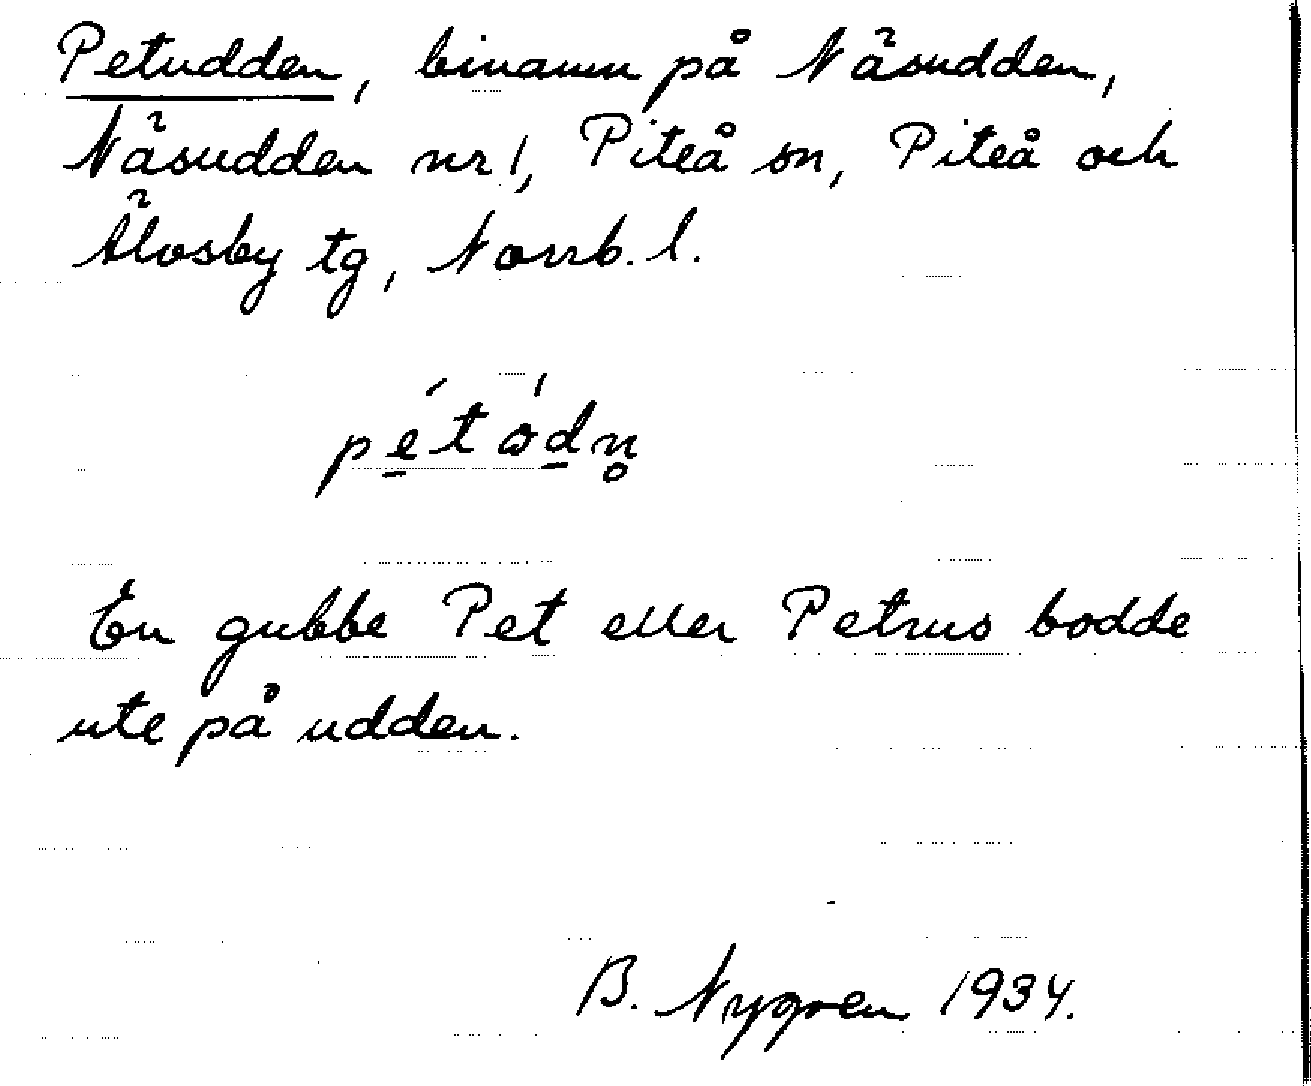 Petudden, binamn på Näsudden,
Näsudden nr 1, Piteå sn, Piteå och
Älvsby tg, Norrb. l.
pe̱´tò̱´dn̥
En gubbe Pet eller Petrus bodde
ute på udden.
B. Nygren 1934.